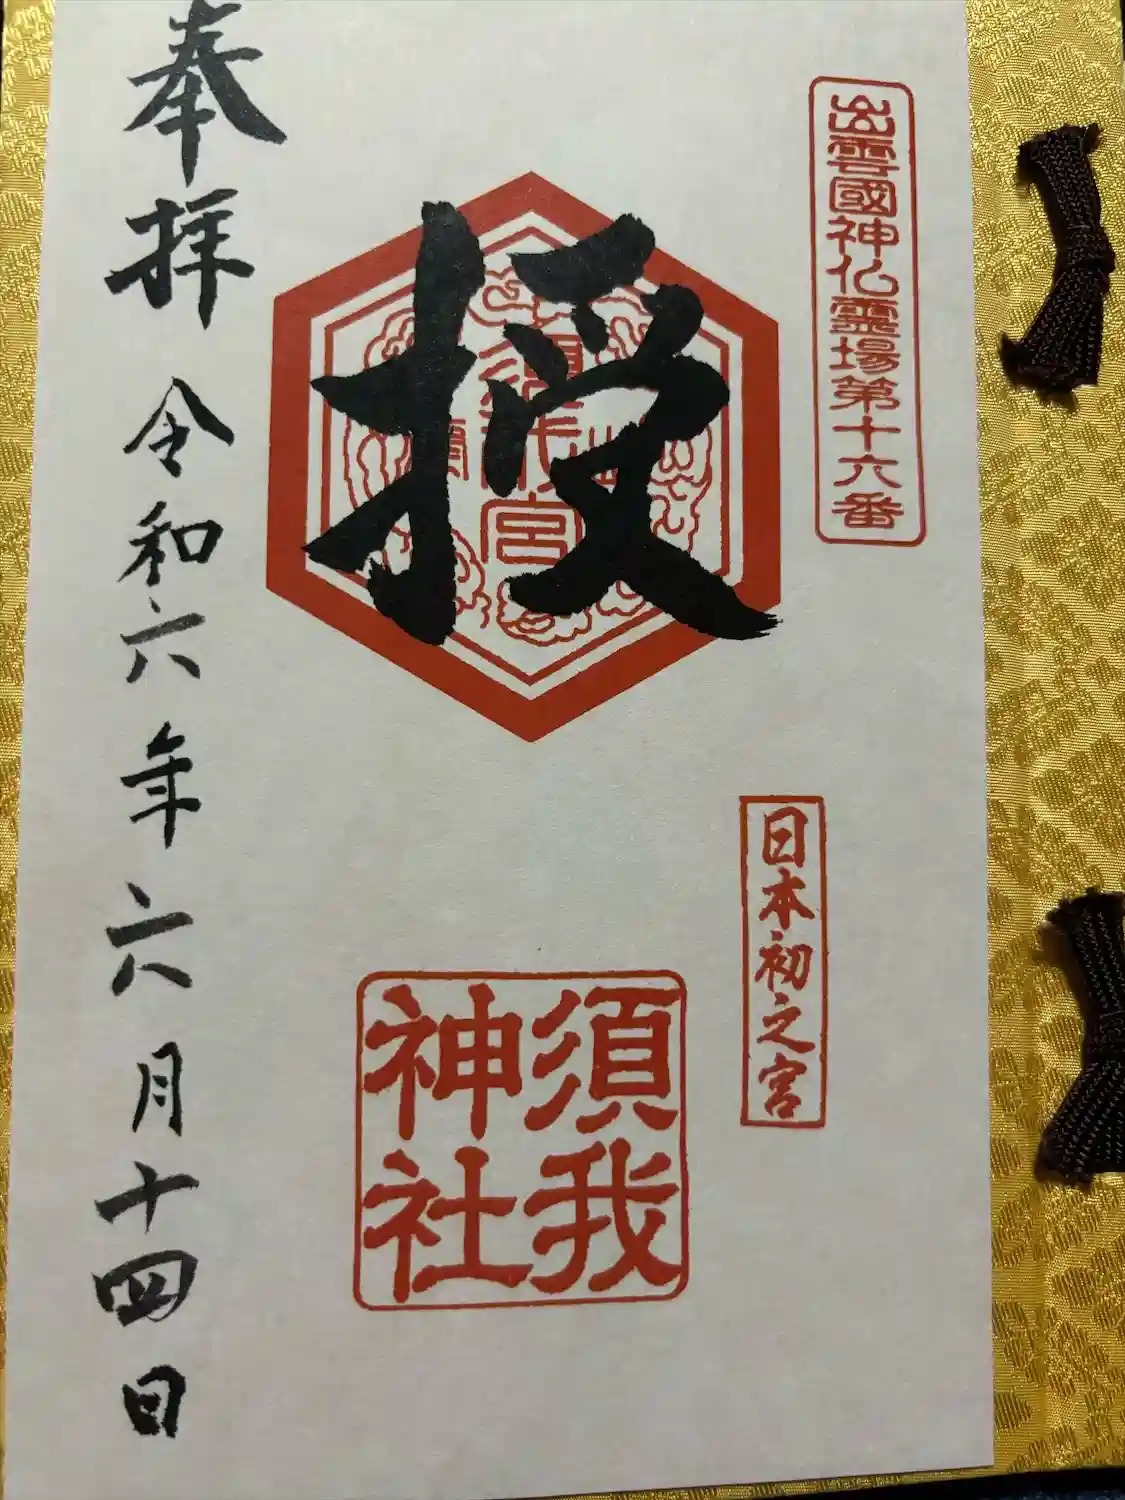 出雲國神仏霊場第十六番
日本初之宮
授
須我
神社
奉拝 令和六年六月十四日